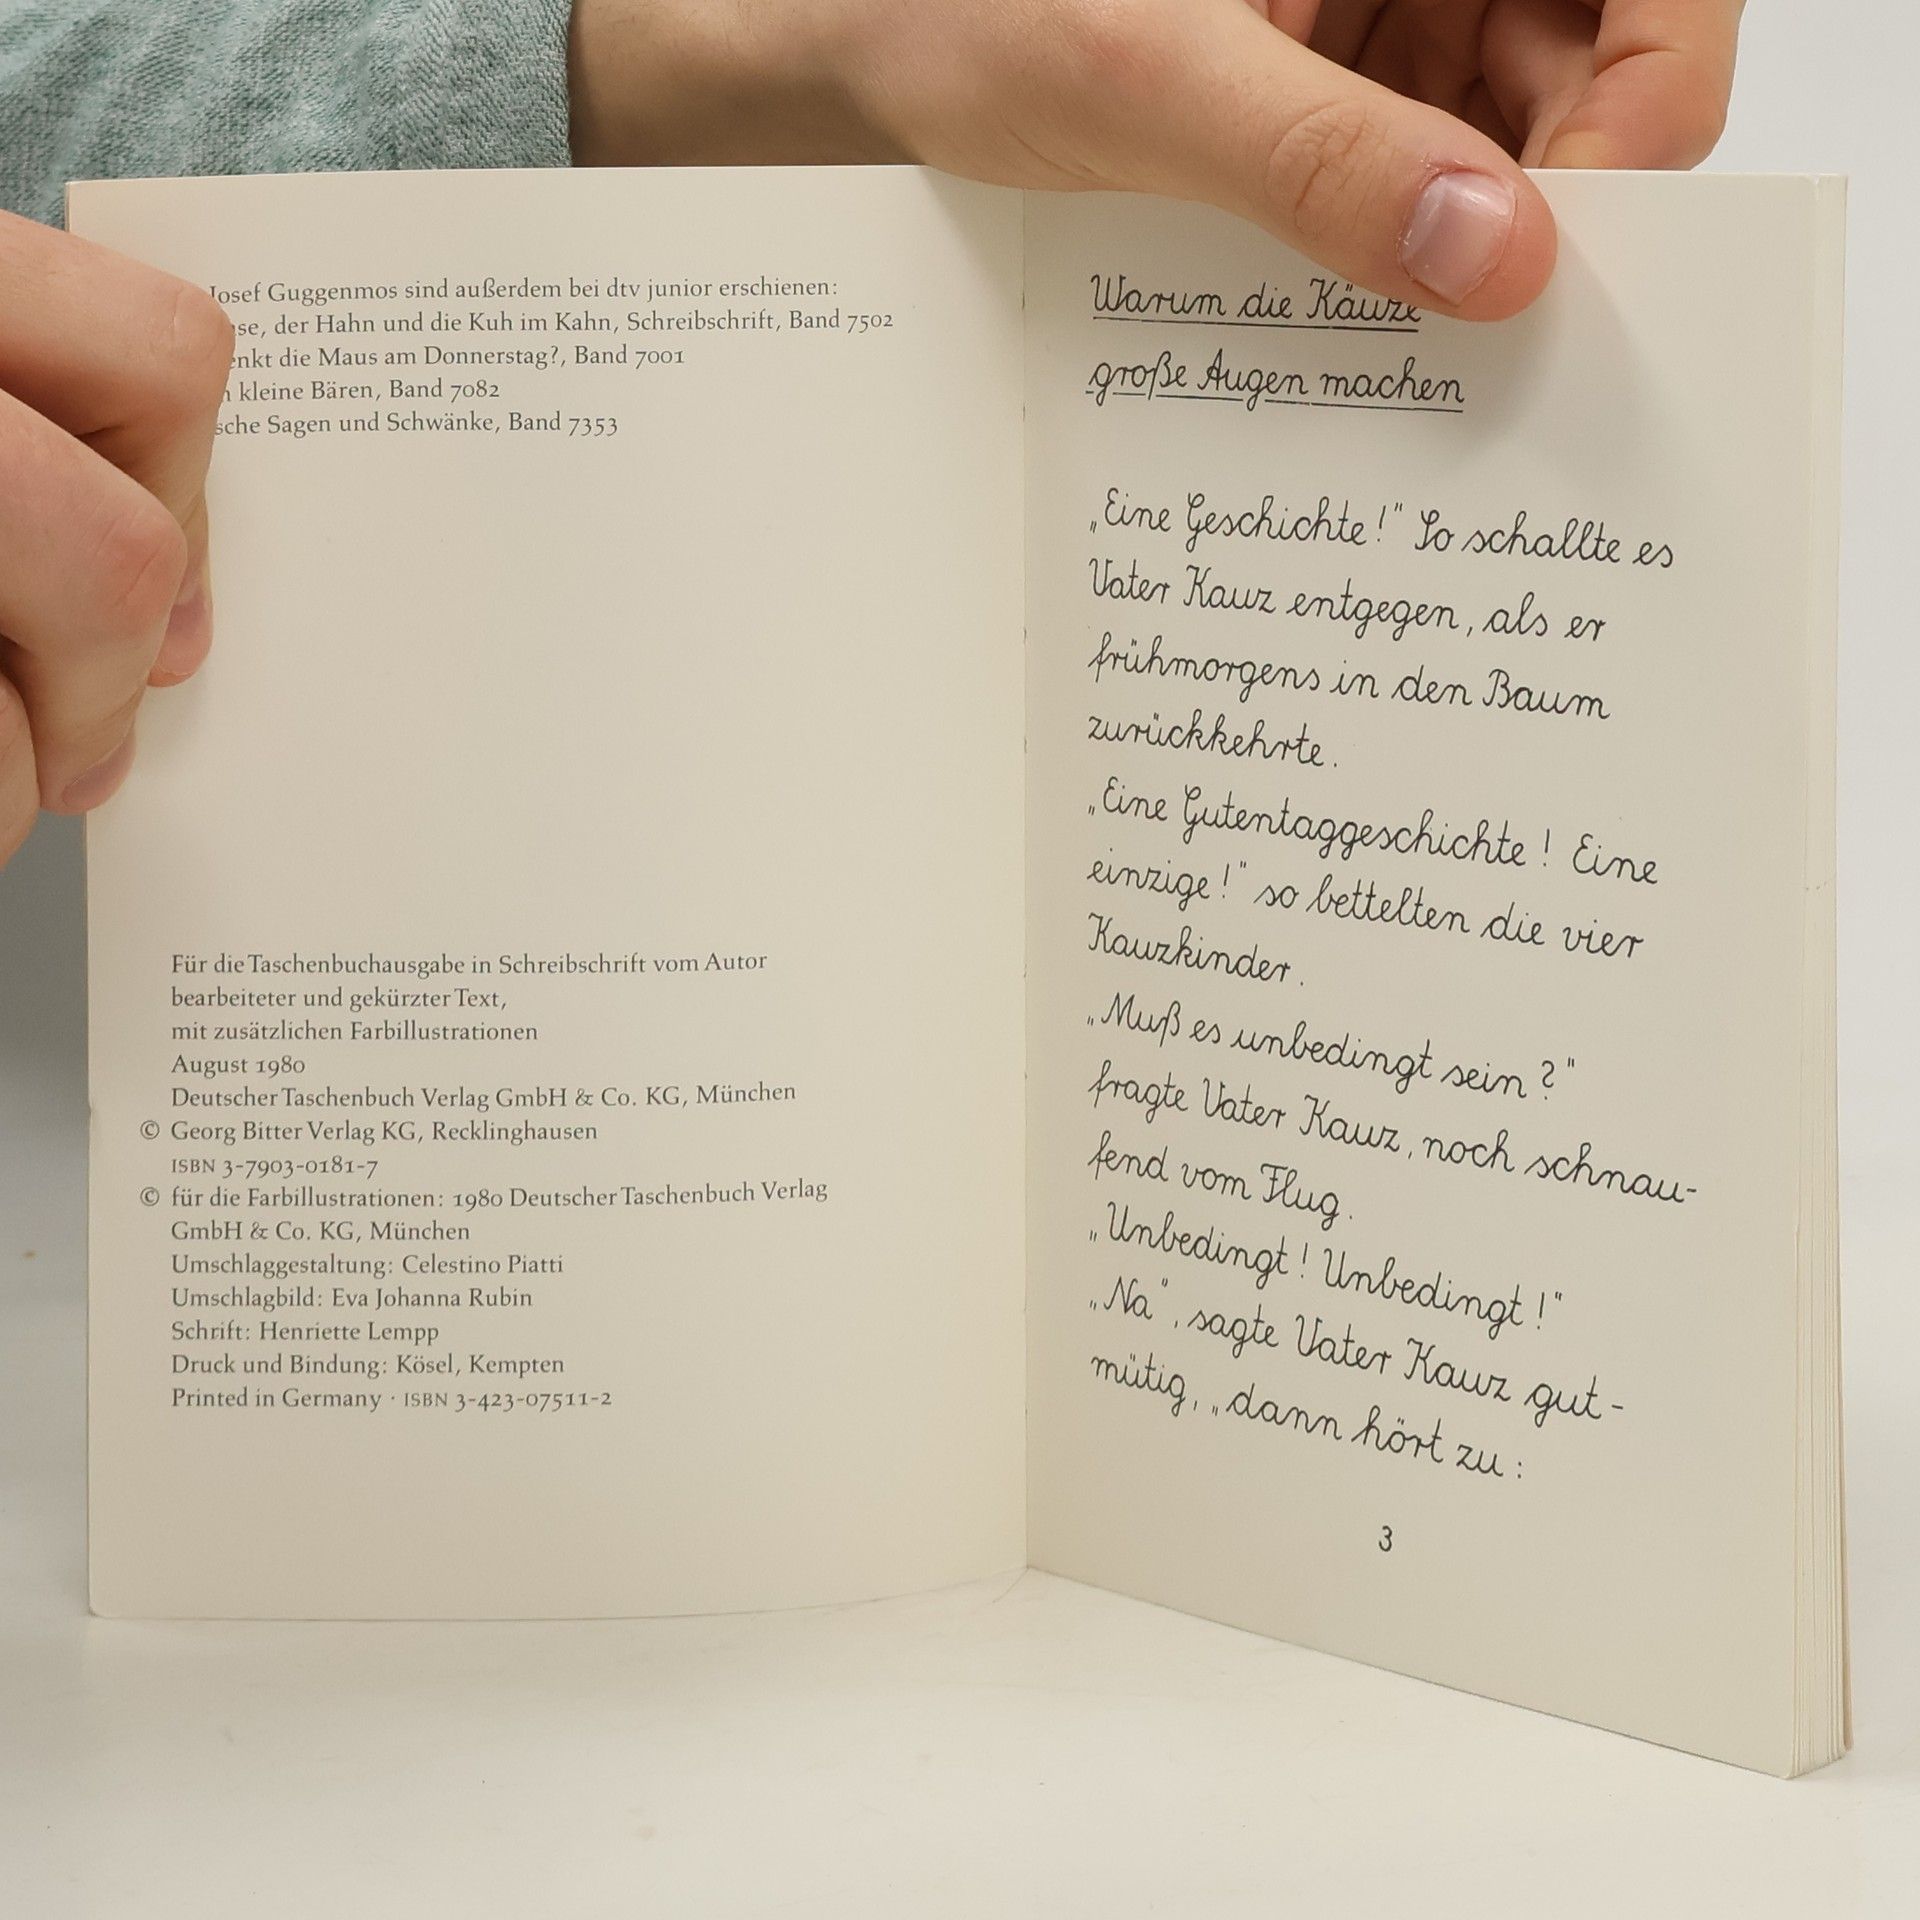 Josef Guggenmos sind außerdem bei dtv junior erschienen:
der Hahn und die Kuh im Kahn, Schreibschrift, Band 7502
die Maus am Donnerstag?, Band 7001
kleine Bären, Band 7082
Sagen und Schwänke, Band 7353
Für die Taschenbuchausgabe in Schreibschrift vom Autor
bearbeiteter und gekürzter Text,
mit zusätzlichen Farbillustrationen
August 1980
Deutscher Taschenbuch Verlag GmbH & Co. KG, München
© Georg Bitter Verlag KG, Recklinghausen
ISBN 3-7903-0181-7
© für die Farbillustrationen: 1980 Deutscher Taschenbuch Verlag
GmbH & Co. KG, München
Umschlaggestaltung: Celestino Piatti
Umschlagbild: Eva Johanna Rubin
Schrift: Henriette Lempp
Druck und Bindung: Kösel, Kempten
Printed in Germany · ISBN 3-423-07511-2
Warum die Käuze
große Augen machen
„Eine Geschichte!" So schallte es
Vater Kauz entgegen, als er
frühmorgens in den Baum
zurückkehrte.
„Eine Gutentaggeschichte! Eine
einzige!" so bettelten die vier
Kauzkinder.
„Muß es unbedingt sein?"
fragte Vater Kauz, noch schnau-
fend vom Flug.
„Unbedingt! Unbedingt!"
„Na", sagte Vater Kauz gut-
mütig, „dann hört zu:
3